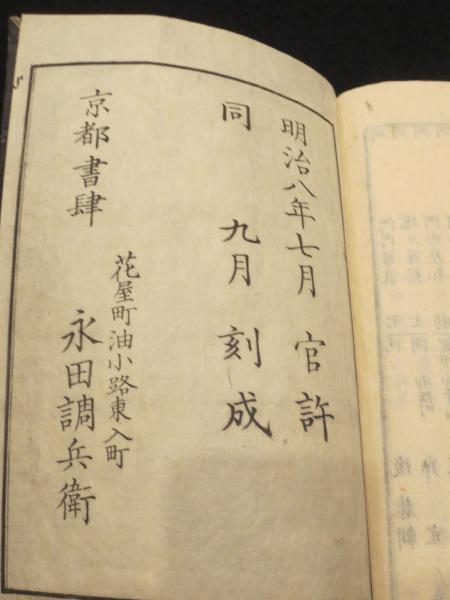 明治八年七月 官許
同 九月 刻成
京都書肆
花屋町油小路東入町
永田調兵衛